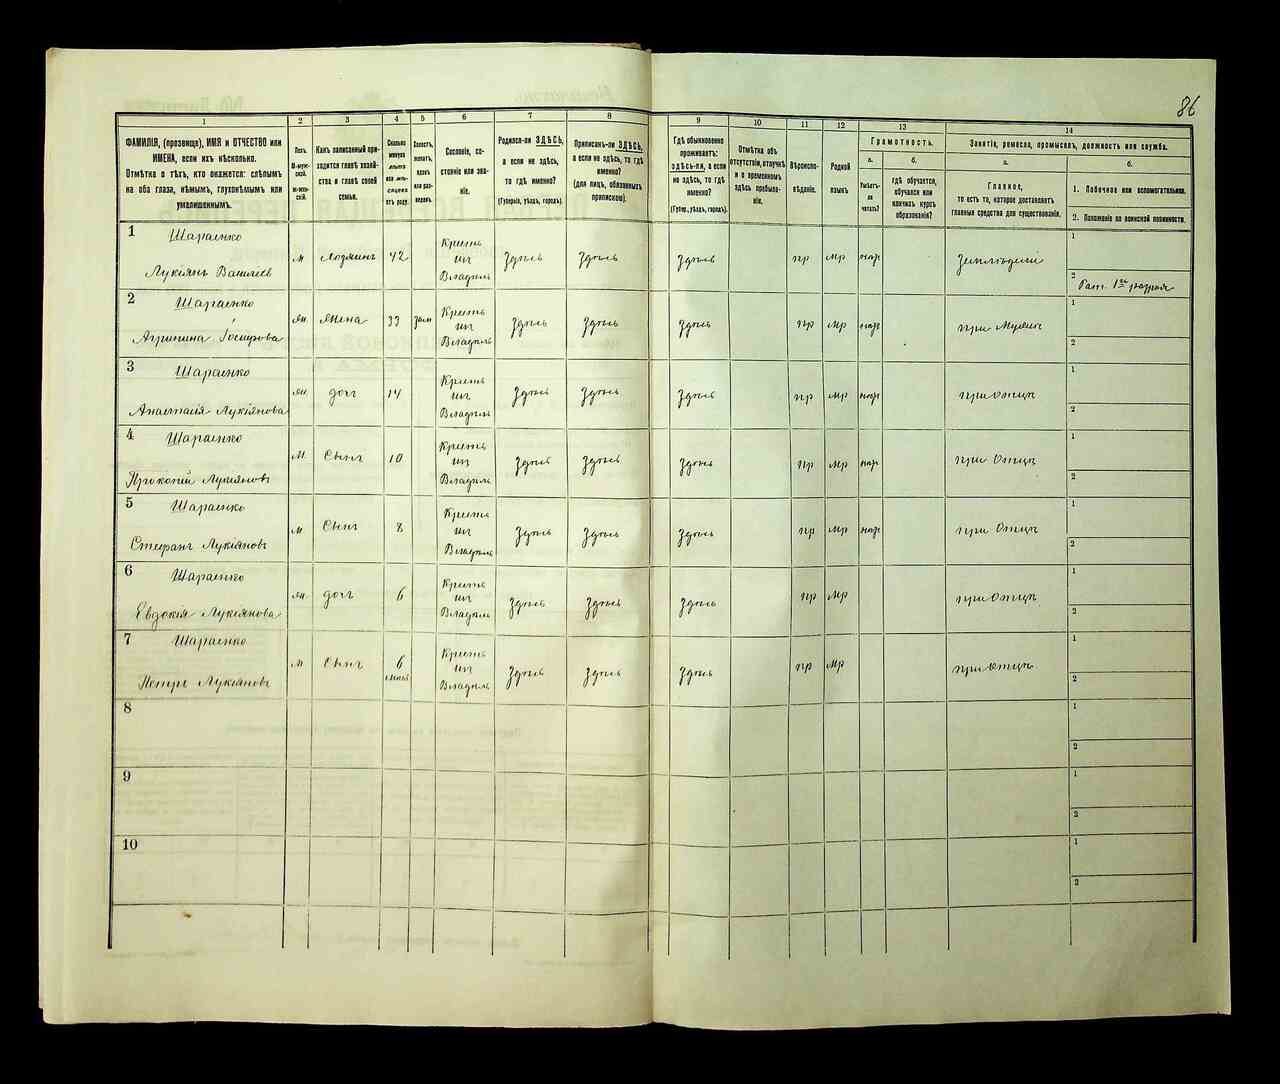 86
1
2
3
4
5
6
7
8
9
10
11
12
13
14
ФАМИЛІЯ, (прозвище), ИМЯ и ОТЧЕСТВО или
ИМЕНА, если ихъ нѣсколько.
Отмѣтка о тѣхъ, кто окажется: слѣпымъ
на оба глаза, нѣмымъ, глухонѣмымъ или
умалишеннымъ.
Полъ.
М-муж-
ской.
Ж-жен-
скій.
Какъ записанный при-
ходится главѣ хозяй-
ства и главѣ своей
семьи.
Сколько
минуло
лѣтъ
или мѣ-
сяцевъ
отъ роду.
Холостъ,
женатъ,
вдовъ
или раз-
веденъ.
Сословіе, со-
стояніе или зва-
ніе.
Родился-ли ЗДѢСЬ,
а если не здѣсь,
то гдѣ именно?
(Губернія, уѣздъ, городъ).
Приписанъ-ли ЗДѢСЬ,
а если не здѣсь, то гдѣ
именно?
(для лицъ, обязанныхъ
припискою).
Гдѣ обыкновенно
проживаетъ:
здѣсь-ли, а если
не здѣсь, то гдѣ
именно?
(Губер., уѣздъ, городъ).
Отмѣтка объ
отсутствіи, отлучкѣ
и о временномъ
здѣсь пребыва-
ніи.
Вѣроиспо-
вѣданіе.
Родной
языкъ.
Грамотность.
а.
Умѣетъ-
ли
читать?
б.
гдѣ обучается,
обучался или
кончилъ курсъ
образованія?
Занятіе, ремесло, промыселъ, должность или служба.
а.
Главное,
то есть то, которое доставляетъ
главныя средства для существованія.
б.
1. Побочное или вспомогательное.
2. Положеніе по воинской повинности.
1
Шараенко
Лукіянъ Василіевъ
м
Хозяинъ
42
Крестьянинъ
Владѣль
здѣсь
здѣсь
здѣсь
пр
мр
нѣт
Земледеліе
1
2 Рат. 1го разряд
2
Шараенко
Агрипина Іосифова
жн
Жена
33
зам
Крестьян
Владѣль
здѣсь
здѣсь
здѣсь
пр
мр
нѣт
при Мужѣ
1
2
3
Шараенко
Анастасія Лукіянова
жн
доч
14
Крестьян
Владѣль
здѣсь
здѣсь
здѣсь
пр
мр
нѣт
при Отцѣ
1
2
4
Шараенко
Прокопій Лукіяновъ
м
Сынъ
10
Крестьян
Владѣль
здѣсь
здѣсь
здѣсь
пр
мр
нѣт
при Отцѣ
1
2
5
Шараенко
Стефанъ Лукіяновъ
м
Сынъ
8
Крестьян
Владѣль
здѣсь
здѣсь
здѣсь
пр
мр
нѣт
при Отцѣ
1
2
6
Шараенко
Евдокія Лукіянова
жн
доч
6
Крестьян
Владѣль
здѣсь
здѣсь
здѣсь
пр
мр
при Отцѣ
1
2
7
Шараенко
Петръ Лукіяновъ
м
Сынъ
6
Крестьян
Владѣль
здѣсь
здѣсь
здѣсь
пр
мр
при Отцѣ
1
2
8
1
2
9
1
2
10
1
2